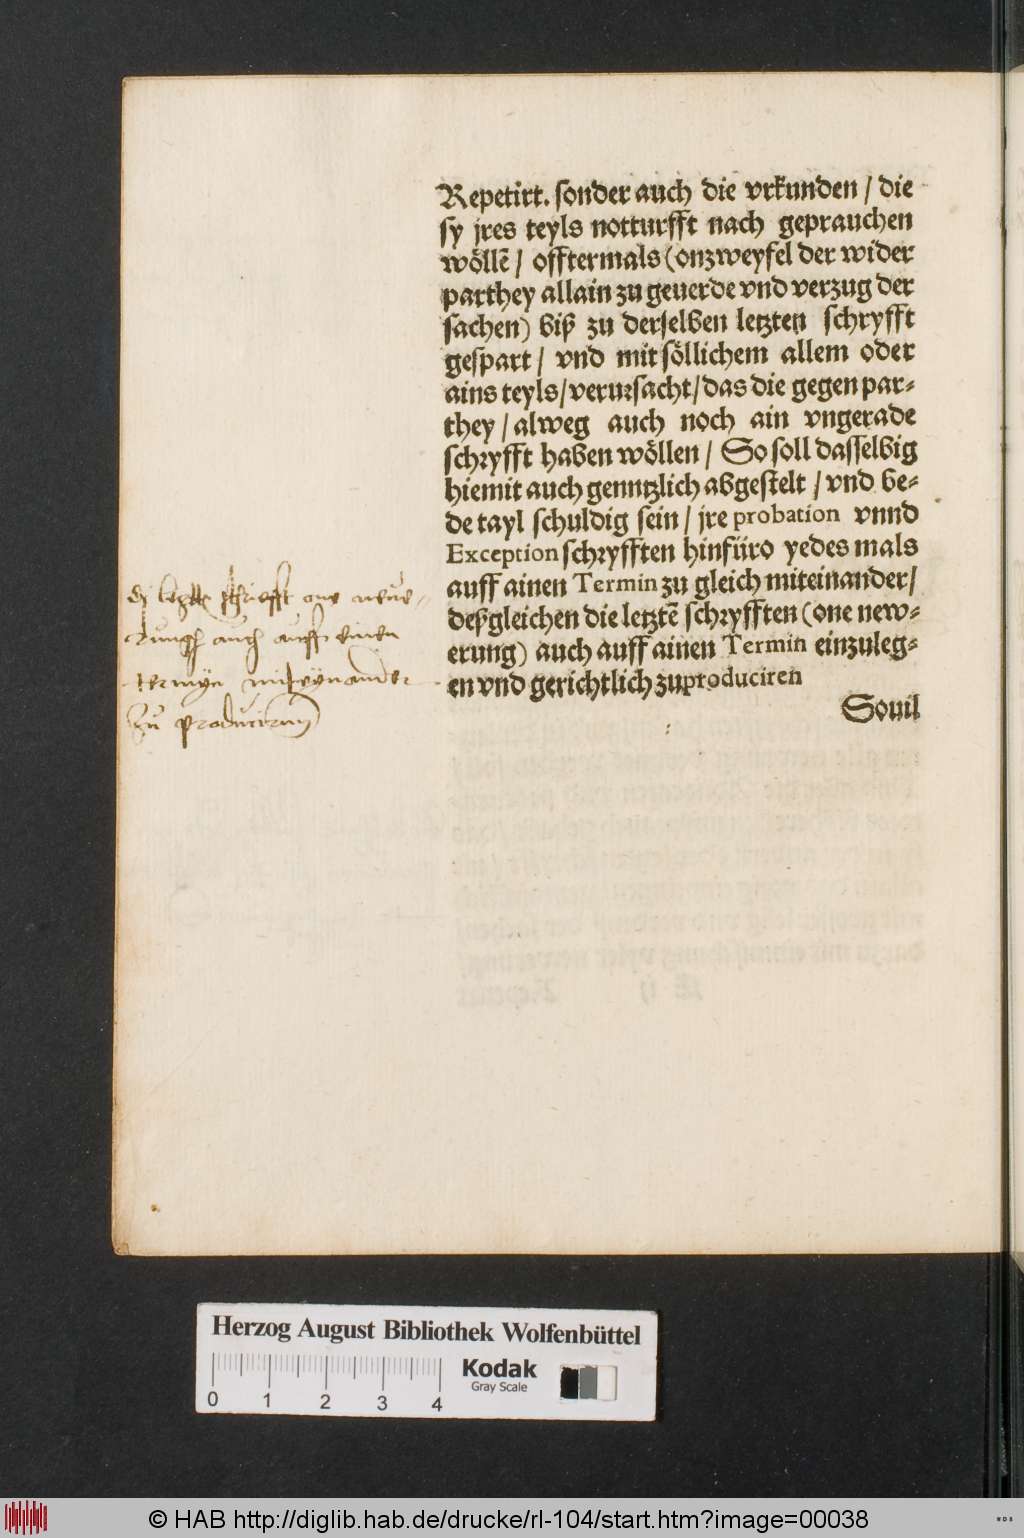 Repetirt. sonder auch die vrkunden / die
sy jres teyls notturfft nach geprauchen
wöllē / offtermals (onzweyfel der wider
parthey allain zu geuerde vnd verzug der
sachen) biß zu derselben letzten schryfft
gespart / vnd mit söllichem allem oder
ains teyls / verursacht / das die gegen par⸗
they / alweg auch noch ain vngerade
schryfft haben wöllen / So soll dasselbig
hiemit auch genntzlich abgestelt / vnd be⸗
de tayl schuldig sein / jre probation vnnd
Exception schryfften hinfüro yedes mals
auff ainen Termin zu gleich miteinander /
deßgleichen die letztē schryfften (one new⸗
erung) auch auff ainen Termin einzuleg⸗
en vnd gerichtlich zu produciren
Souil
di letzte schriefft one neue⸗
rungh auch auff einen
termyn mit eynander
zu produciern
Herzog August Bibliothek Wolfenbüttel
Kodak
Gray Scale
0 1 2 3 4
© HAB http://diglib.hab.de/drucke/rl-104/start.htm?image=00038